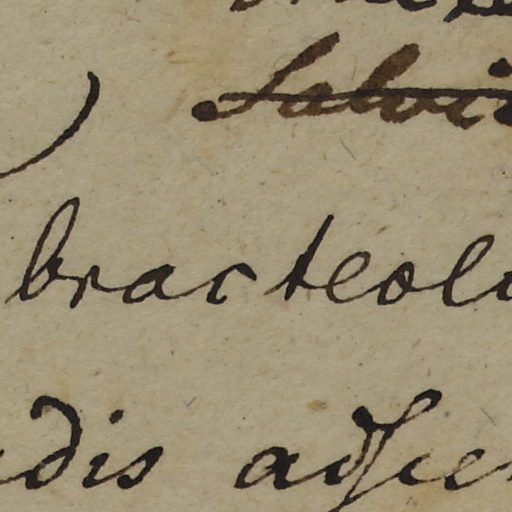 Salvi
)
bracteol
dis adscen